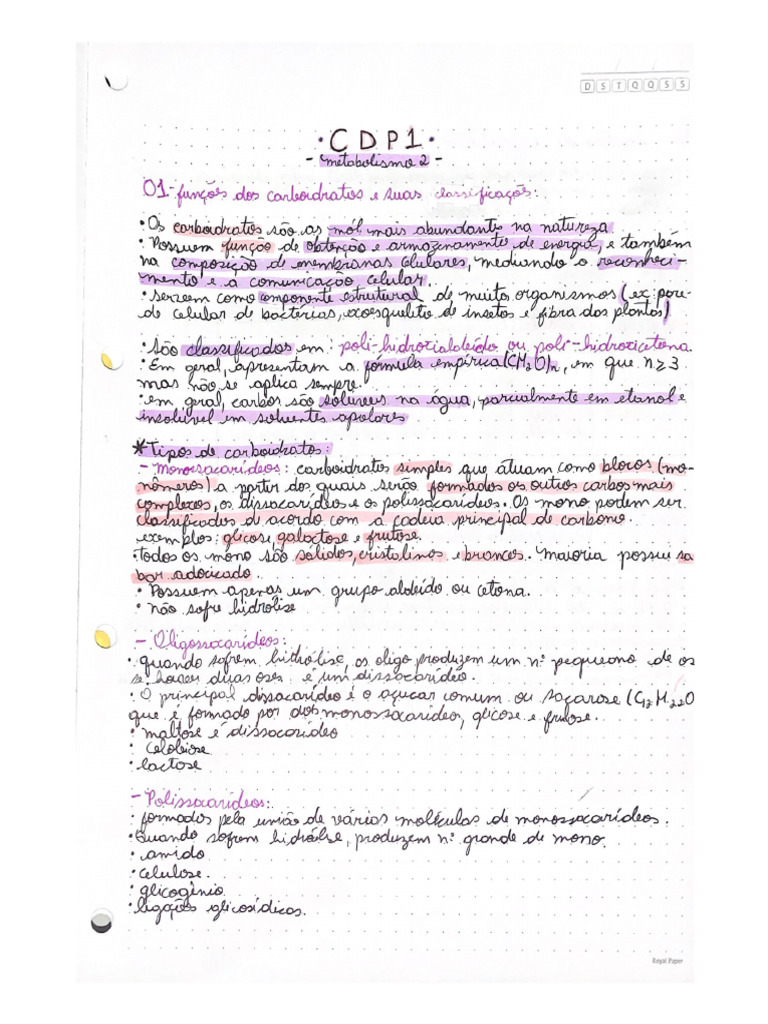 D S T Q Q S S
• C D P 1 •
- metabolismo 2 -
01- funções dos carboidratos e suas classificações:
• Os carboidratos são as mól mais abundantes na natureza
• Possuem função de obtenção e armazenamento de energia, e também
na composição de membranas celulares, mediando o reconheci-
mento e a comunicação celular.
• servem como componente estrutural de muitos organismos (ex: pare-
de celular de bactérias, exoesqueleto de insetos e fibra dos plantas)
• São classificados em: poli-hidroxialdeído ou poli-hidroxicetona.
• Em geral, apresentam a fórmula empírica (CH₂O)n, em que n ≥ 3
mas não se aplica sempre.
• em geral, carbos são solúveis na água, parcialmente em etanol e
insolúvel em solventes apolares
*Tipos de carboidratos:
- Monossacarídeos: carboidratos simples que atuam como blocos (mo-
nômeros) a partir dos quais serão formados os outros carbos mais
complexos, os dissacarídeos e os polissacarídeos. Os mono podem ser
classificados de acordo com a cadeia principal de carbono.
exemplos: glicose, galactose e frutose.
• Todos os mono são sólidos, cristalinos e brancos. Maioria possui sa
bor adocicado.
• Possuem apenas um grupo aldeído ou cetona.
• não sofre hidrólise
- Oligossacarídeos:
• quando sofrem hidrólise, os oligo produzem um nº pequeno de os
se houver duas oses é um dissacarídeo.
• O principal dissacarídeo é o açucar comum ou sacarose (C₁₂H₂₂O
que é formado por dois monossacarídeos, glicose e frutose.
• maltose é dissacarídeo
• celobiose
• lactose
- Polissacarídeos:
• formados pela união de várias moléculas de monossacarídeos.
• Quando sofrem hidrólise, produzem nº grande de mono.
• amido
• celulose.
• glicogênio
• ligações glicosídicas.
Royal Paper